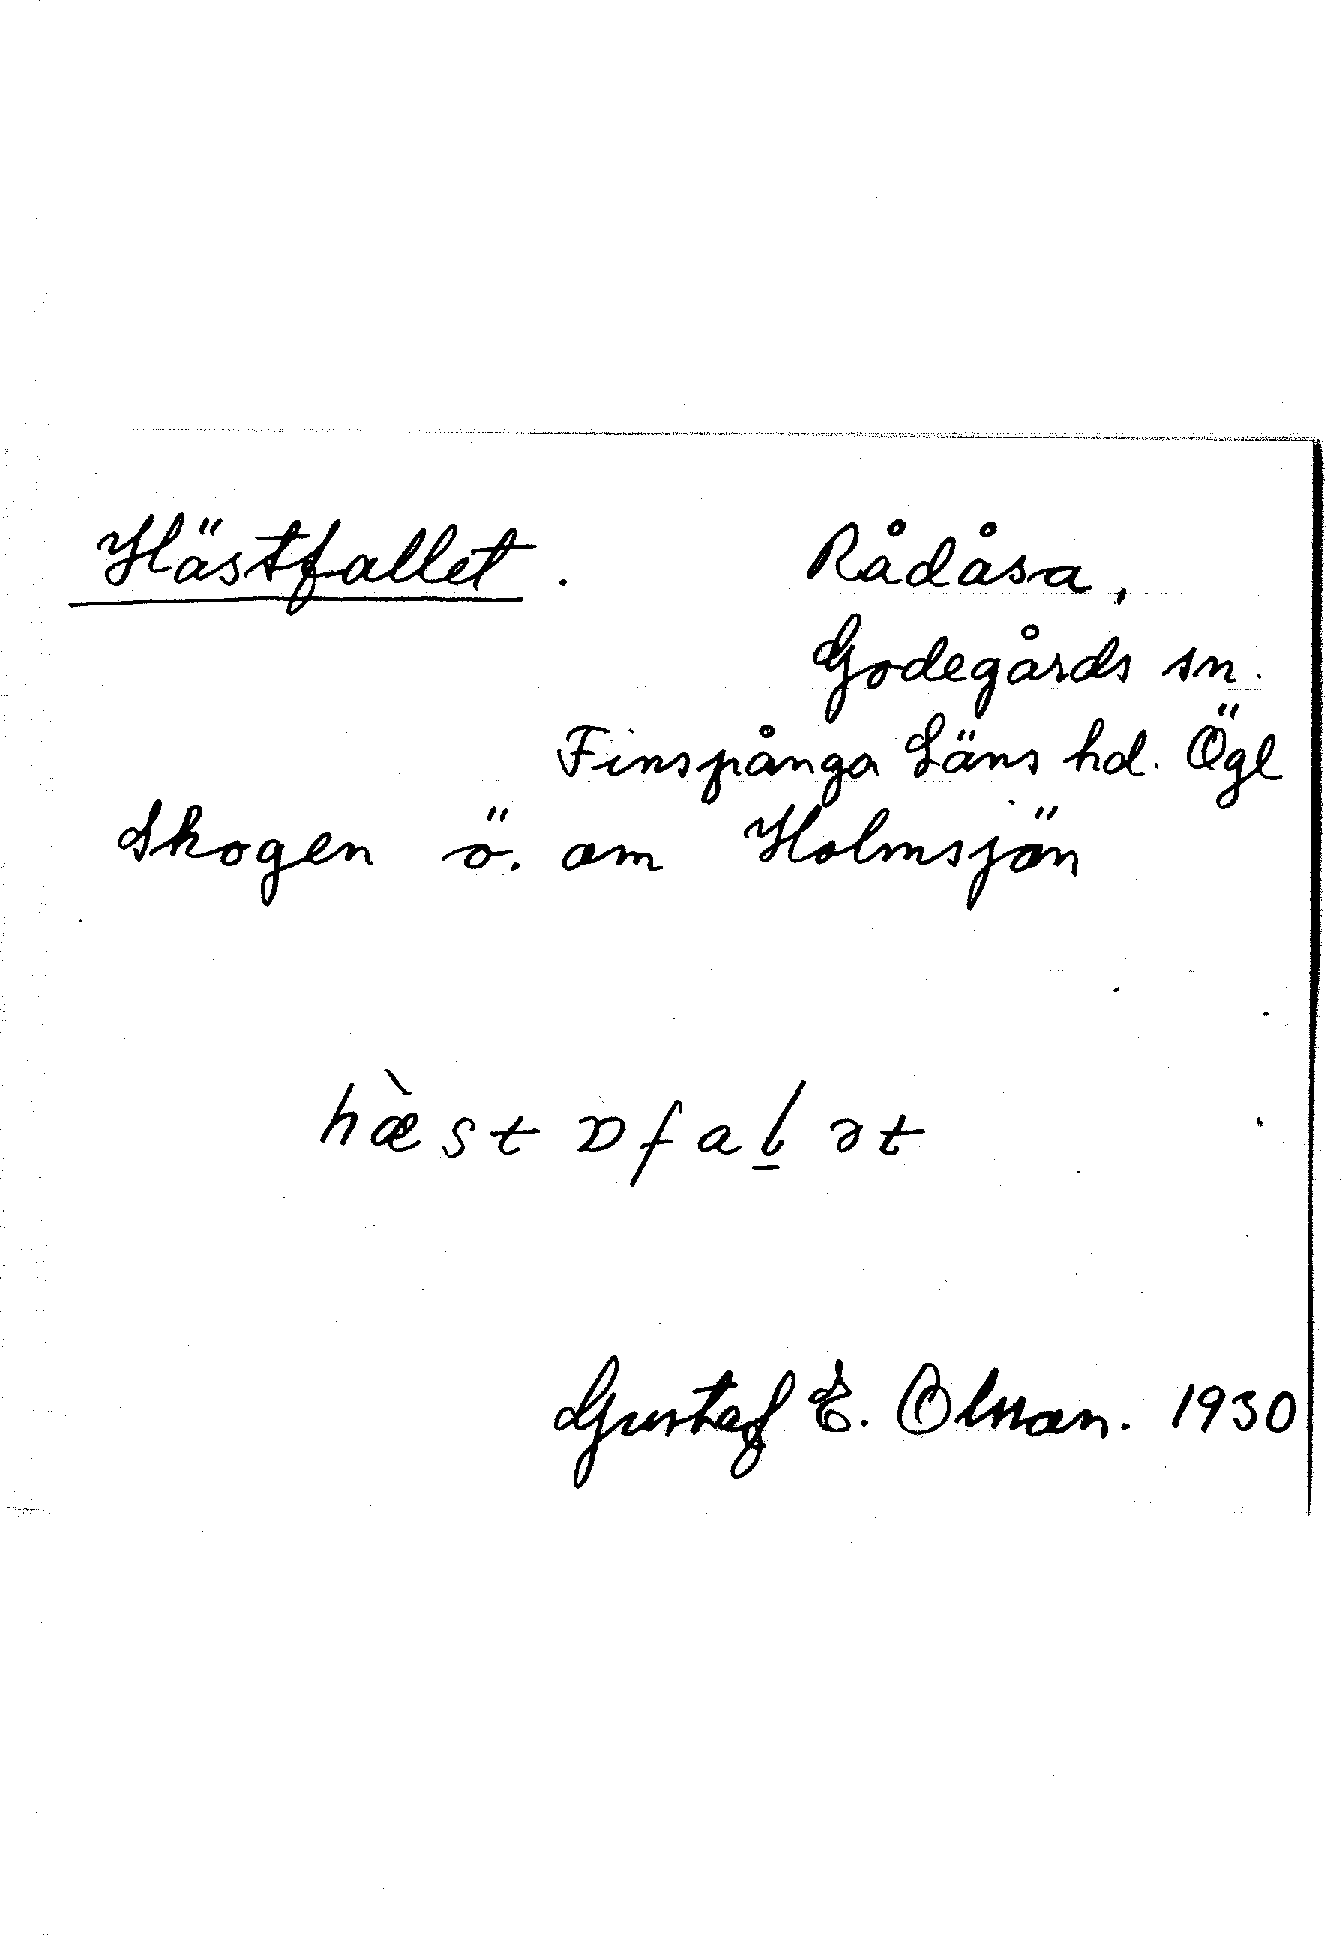 Hästfallet. Rådåsa,
Godegårds sn.
Finspånga Läns hd. Ögl
Skogen ö. om Holmsjön
hæ̀st ɒfal̲ət
Gustaf E. Olsson. 1930